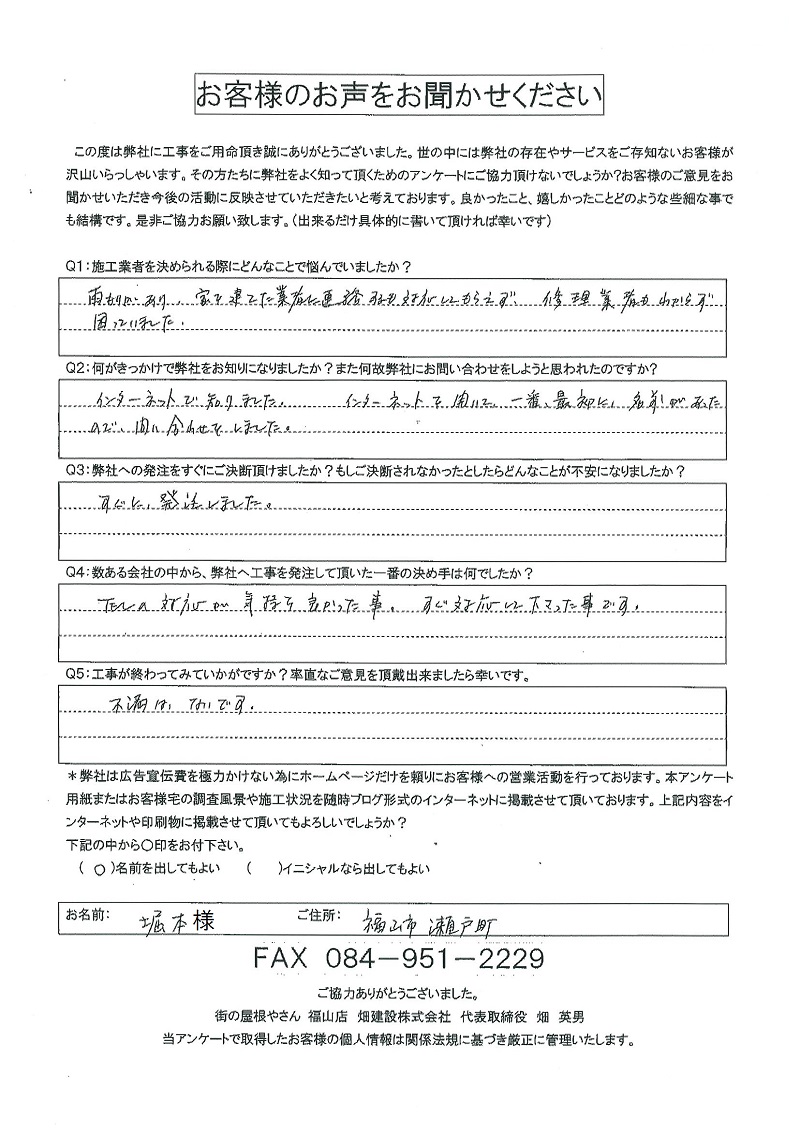 お客様のお声をお聞かせください
この度は弊社に工事をご用命頂き誠にありがとうございました。世の中には弊社の存在やサービスをご存知ないお客様が
沢山いらっしゃいます。その方たちに弊社をよく知って頂くためのアンケートにご協力頂けないでしょうか?お客様のご意見をお
聞かせいただき今後の活動に反映させていただきたいと考えております。良かったこと、嬉しかったことどのような些細な事で
も結構です。是非ご協力お願い致します。(出来るだけ具体的に書いて頂ければ幸いです)
Q1:施工業者を決められる際にどんなことで悩んでいましたか?
雨もりがあり、家を建てた業者に連絡すれも対応してもらえず、修理業者もわからず
困っていました。
Q2:何がきっかけで弊社をお知りになりましたか?また何故弊社にお問い合わせをしようと思われたのですか?
インターネットで知りました。 インターネットを開いて、一番、最初に、名前があった
ので、問い合わせをしました。
Q3:弊社への発注をすぐにご決断頂けましたか?もしご決断されなかったとしたらどんなことが不安になりましたか?
すぐに、発注しました。
Q4:数ある会社の中から、弊社へ工事を発注して頂いた一番の決め手は何でしたか?
の対応が気持ち良かった事。 すぐ対応して下さった事です。
Q5:工事が終わってみていかがですか?率直なご意見を頂戴出来ましたら幸いです。
不満は、ないです。
*弊社は広告宣伝費を極力かけない為にホームページだけを頼りにお客様への営業活動を行っております。本アンケート
用紙またはお客様宅の調査風景や施工状況を随時ブログ形式のインターネットに掲載させて頂いております。上記内容をイ
ンターネットや印刷物に掲載させて頂いてもよろしいでしょうか?
下記の中から○印をお付下さい。
(○)名前を出してもよい ( )イニシャルなら出してもよい
お名前: 堀本様 ご住所: 福山市瀬戸町
FAX 084-951-2229
ご協力ありがとうございました。
街の屋根やさん 福山店 畑建設株式会社 代表取締役 畑 英男
当アンケートで取得したお客様の個人情報は関係法規に基づき厳正に管理いたします。